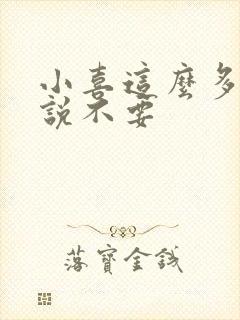 小喜這麼多
說不要
落寶金錢